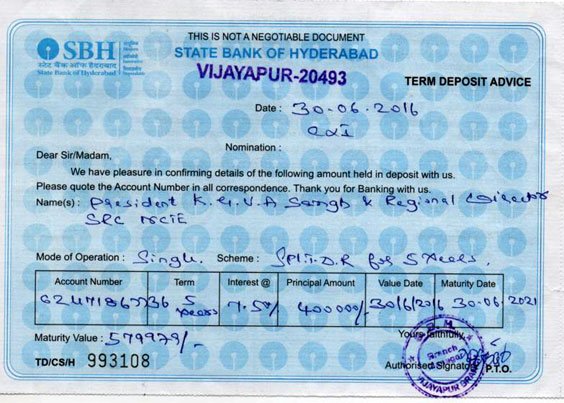 THIS IS NOT A NEGOTIABLE DOCUMENT
SBH
स्टेट बैंक ऑफ हैदराबाद
State Bank of Hyderabad
STATE BANK OF HYDERABAD
VIJAYAPUR-20493
TERM DEPOSIT ADVICE
Date : 30-06-2016
Nomination :
Dear Sir/Madam,
We have pleasure in confirming details of the following amount held in deposit with us.
Please quote the Account Number in all correspondence. Thank you for Banking with us.
Name(s) : President K.G.V.A Sangh & Regional Director
SRC NCTE
Mode of Operation : Single. Scheme : for 5 Years.
Account Number Term Interest @ Principal Amount Value Date Maturity Date
5 years 7.5% 400000/- 30/6/2016 30-06-2021
Maturity Value : 579979/-
Yours faithfully,
TD/CS/H 993108
Authorised Signatory
P.T.O.
Branch
VIJAYAPUR